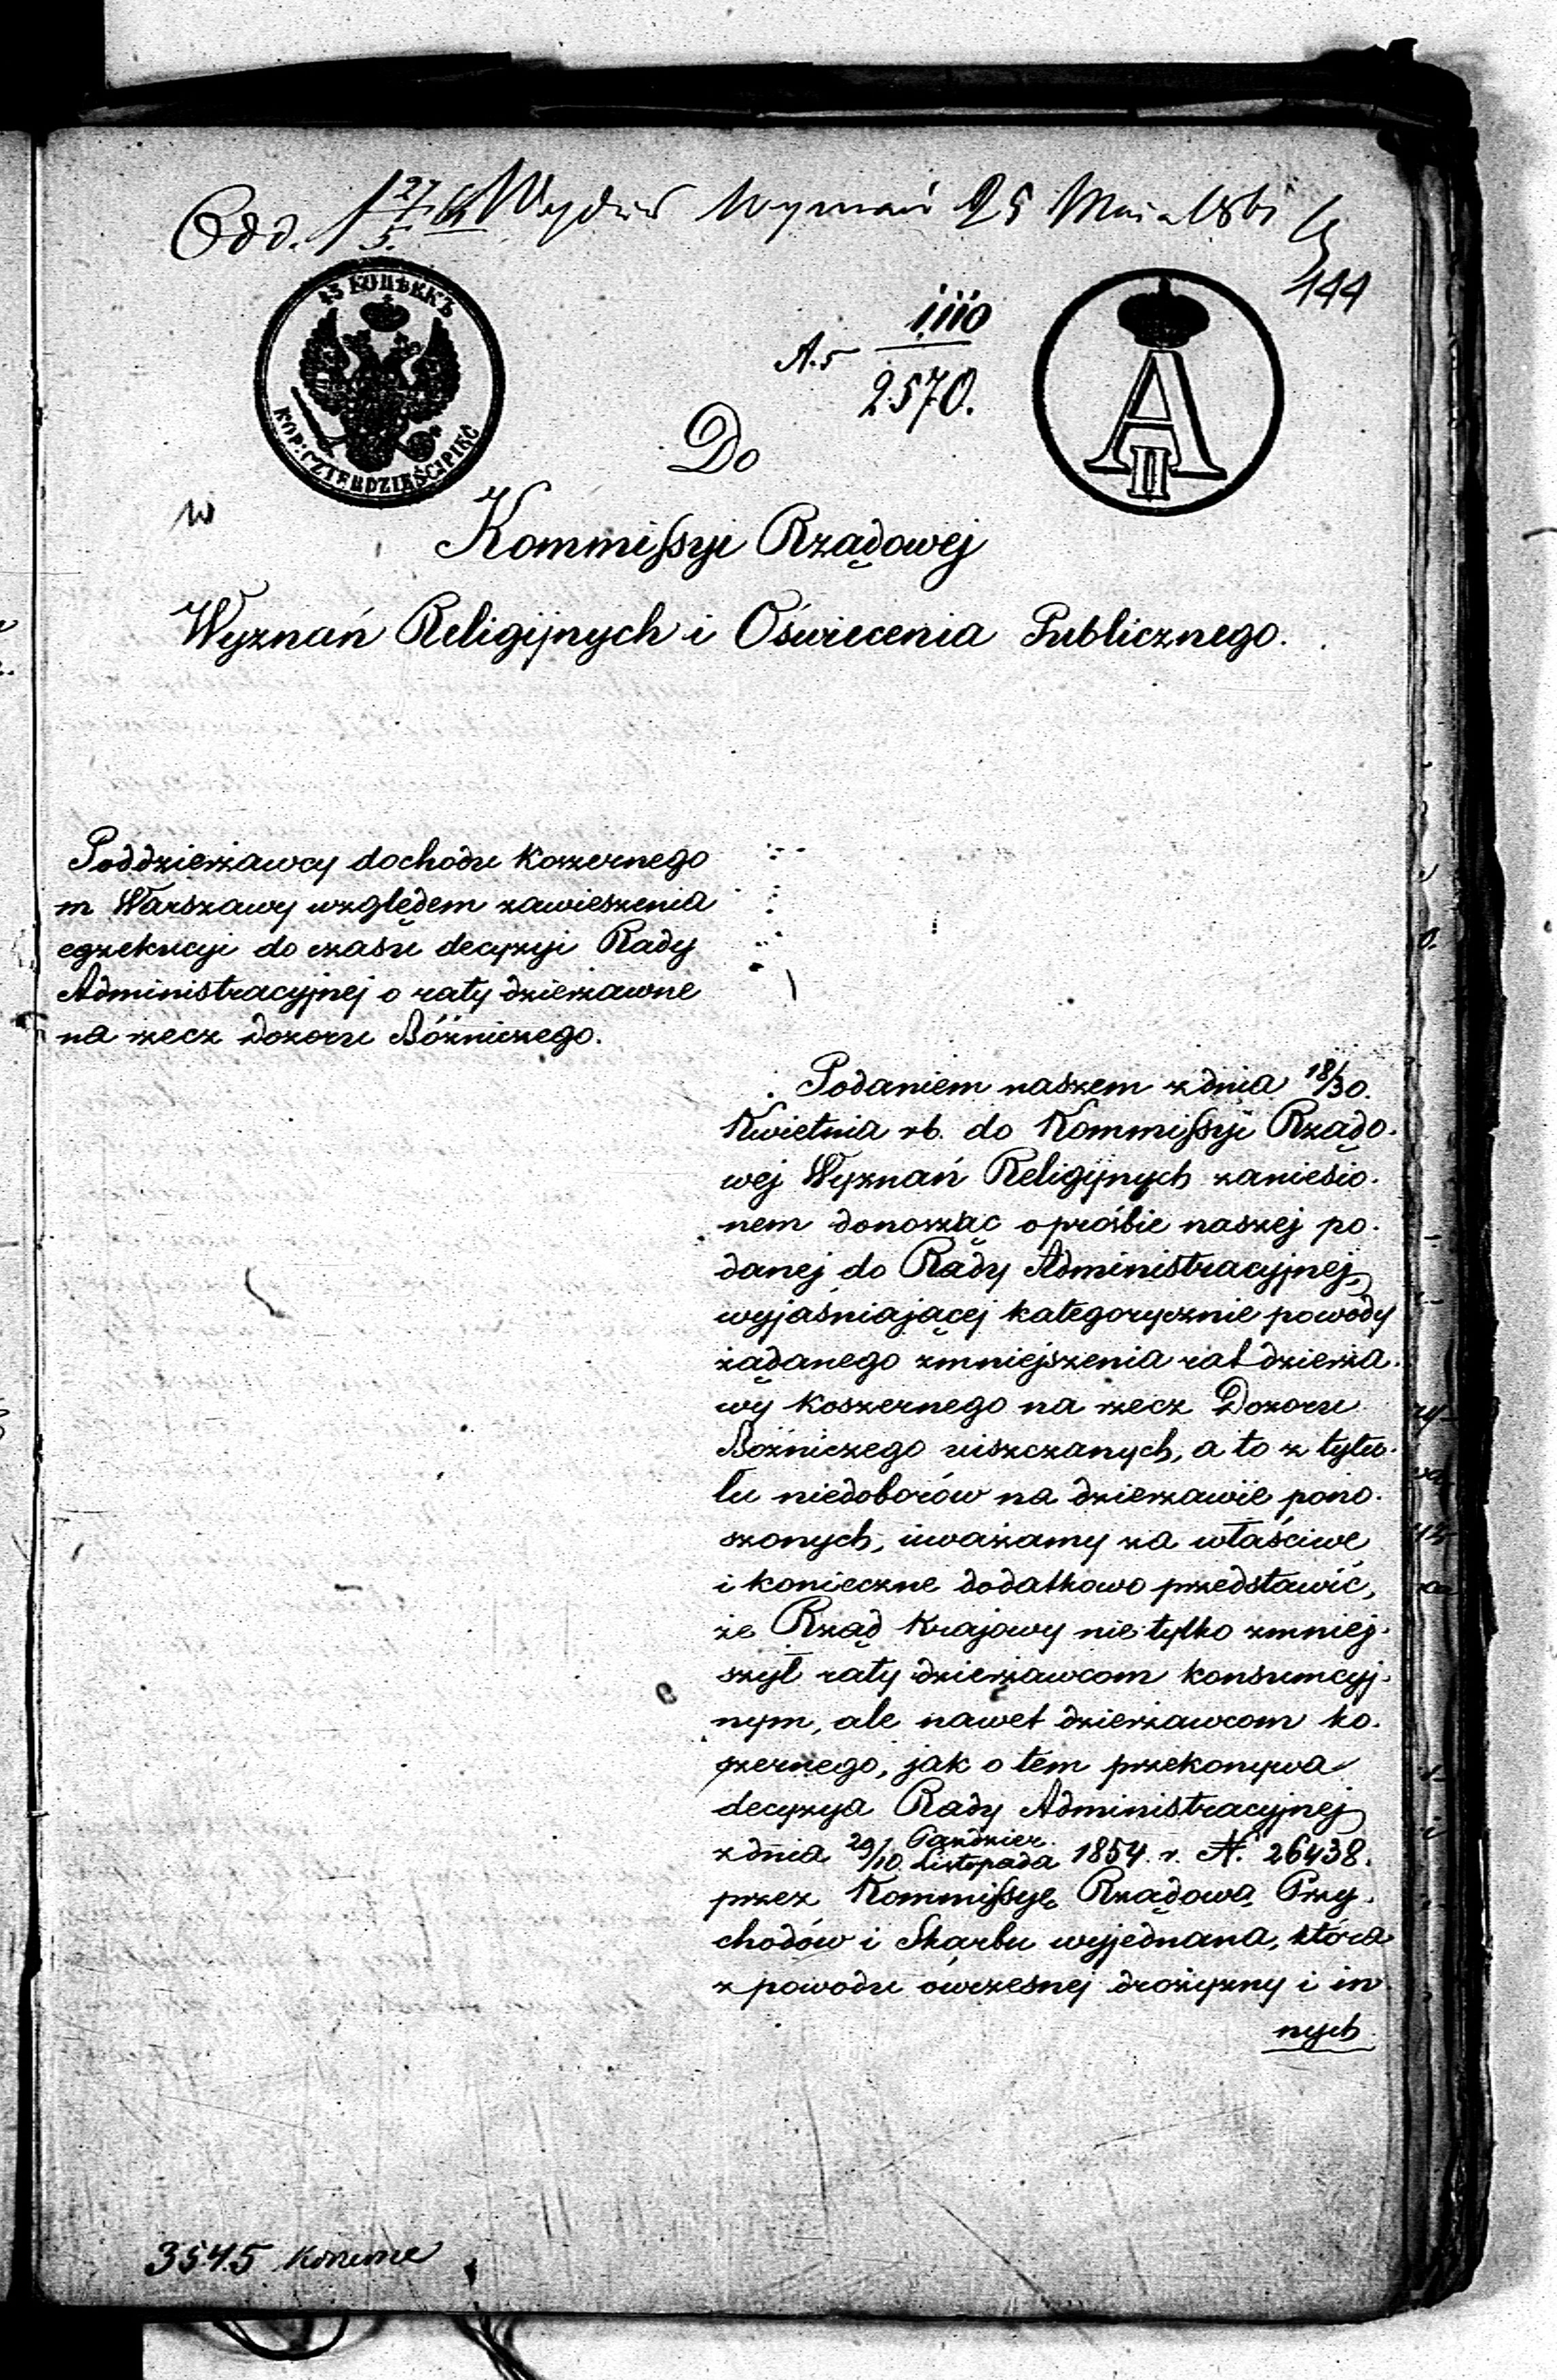 Odd. 1 27/5. Wydział Wyznań 25 Maja 1861
144
45 КОПѢЕКЪ
KOP: CZTERDZIEŚCI PIĘĆ
1,110
2570.
A II
Do
w
Kommissyi Rządowej
Wyznań Religijnych i Oświecenia Publicznego.
Poddzierżawcy dochodu koszernego
m Warszawy względem zawieszenia
egzekucyi do czasu decyzyi Rady
Administracyjnej o raty dzierżawne
na rzecz dozoru Bóżniczego.
Podaniem naszem z dnia 18/30.
Kwietnia rb. do Kommissyi Rządo-
wej Wyznań Religijnych zaniesio-
nem donosząc o prośbie naszej po-
danej do Rady Administracyjnej,
wyjaśniającej kategorycznie powody
żądanego zmniejszenia rat dzierża-
wy koszernego na rzecz Dozoru
Bóżniczego uiszczanych, a to z tytu-
łu niedoborów na dzierżawie pono-
szonych, uważamy za właściwe
i konieczne dodatkowo przedstawić,
że Rząd Krajowy nie tylko zmniej-
szył raty dzierżawcom konsumcyj-
nym, ale nawet dzierżawcom ko-
szernego, jak o tem przekonywa
decyzya Rady Administracyjnej
z dnia 29/10 Paździer. Listopada 1854. r. N. 26438.
przez Kommissyę Rządową Przy-
chodów i Skarbu wyjednana, która
z powodu ówczesnej drożyzny i in-
nych
3545